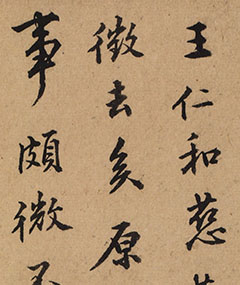 王仁和慈
徵去矣原
事頗微